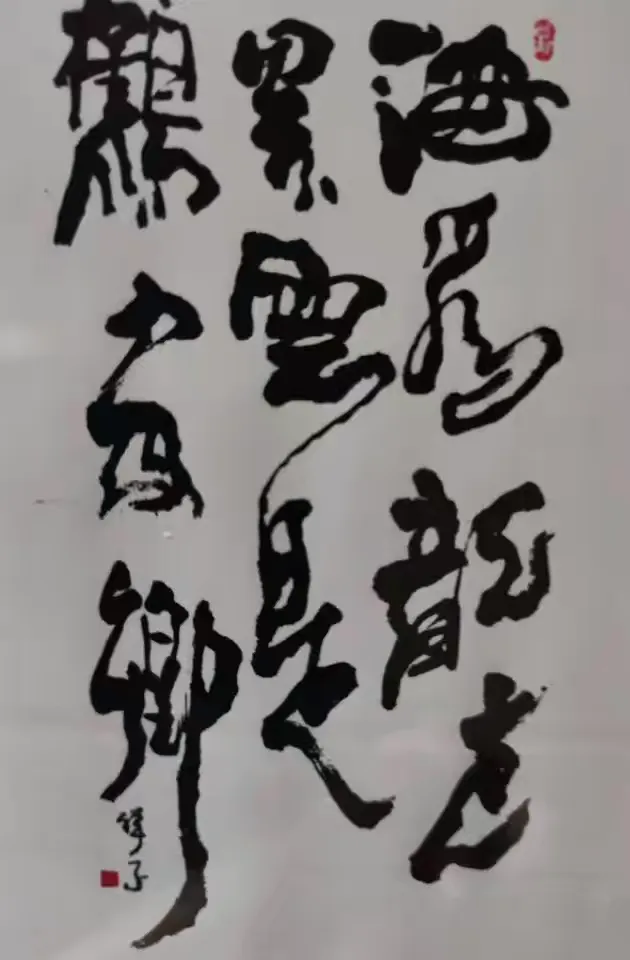 海為龍世
界雲是
鶴家鄉